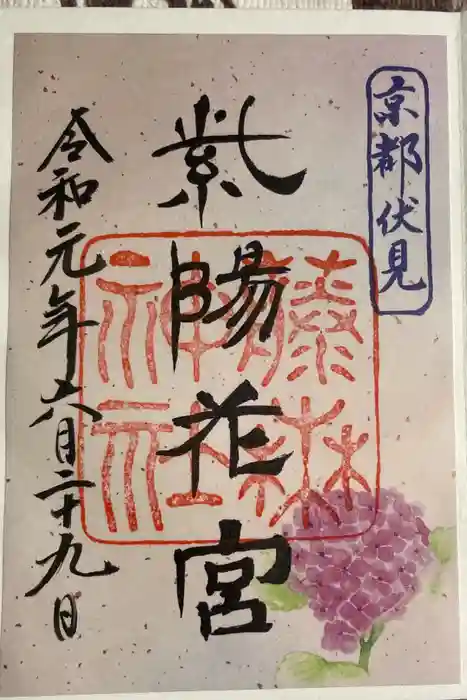 京都伏見
紫陽花宮
藤森神社
令和元年六月二十九日